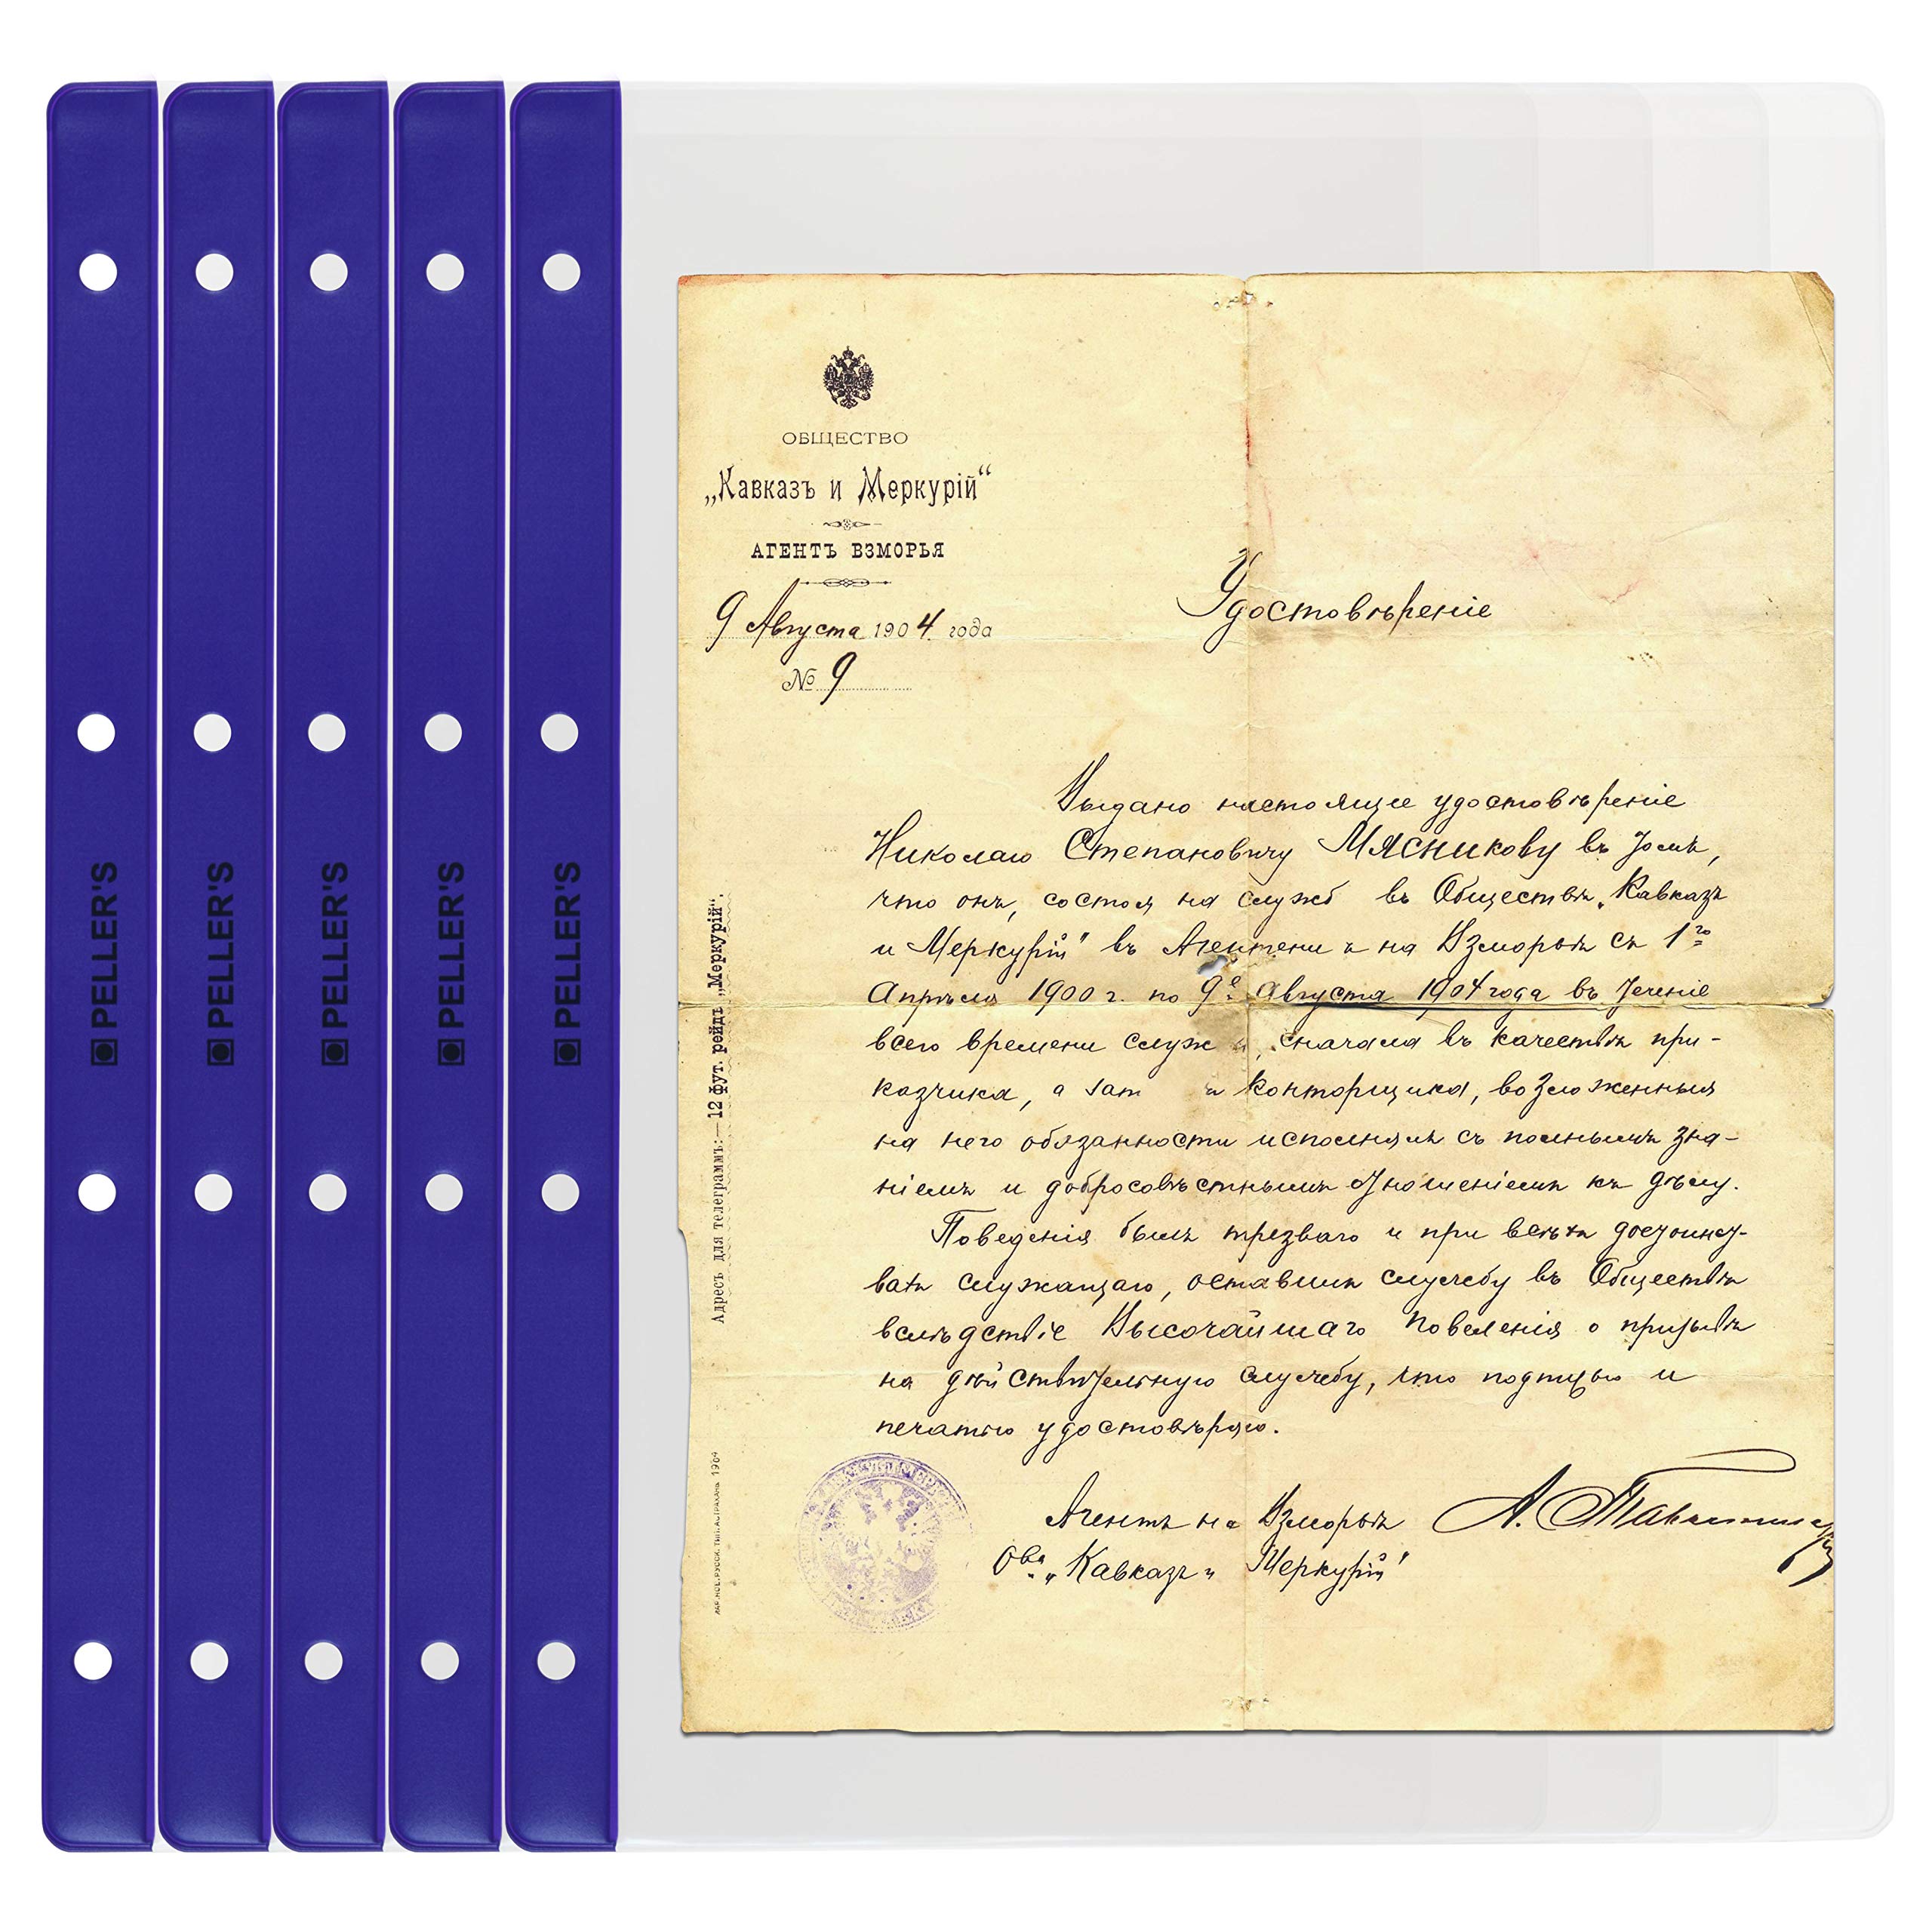 PELLER'S
PELLER'S
PELLER'S
PELLER'S
PELLER'S
ОБЩЕСТВО
„Кавказъ и Меркурій“
АГЕНТЪ ВЗМОРЬЯ
9 Августа 1904 года
№ 9
Удостовѣреніе
Выдано настоящее удостовѣреніе
Николаю Степановичу Мясникову въ томъ,
что онъ, состоя на служб въ Обществѣ „Кавказъ
и Меркурій" въ на Взморьѣ съ 1го
Апрѣля 1900 г. по 9е Августа 1904 года въ теченіе
всего времени служ и, сначала въ качествѣ при-
казчика, а зат ъ конторщика, возложенныя
на него обязанности исполнялъ съ полнымъ зна-
ніемъ и добросовѣстнымъ отношеніемъ къ дѣлу.
Поведенія былъ трезваго и при
служащаго, оставилъ службу въ Обществѣ
вслѣдствіе Высочайшаго Повеленія о призывѣ
на дѣйствительную службу, что подписью и
печатью удостовѣряю.
Агентъ на Взморьѣ
Ова „Кавказъ и Меркурій"
Адресъ для телеграммъ:—12 фут. рейдъ „Меркурій“.